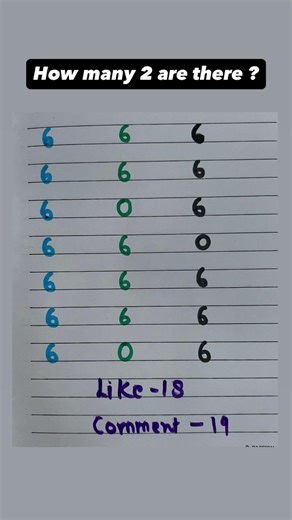 How many 2 are there ?
6 6 6
6 6 6
6 0 6
6 6 0
6 6 6
6 6 6
6 0 6
Like - 18
Comment - 19